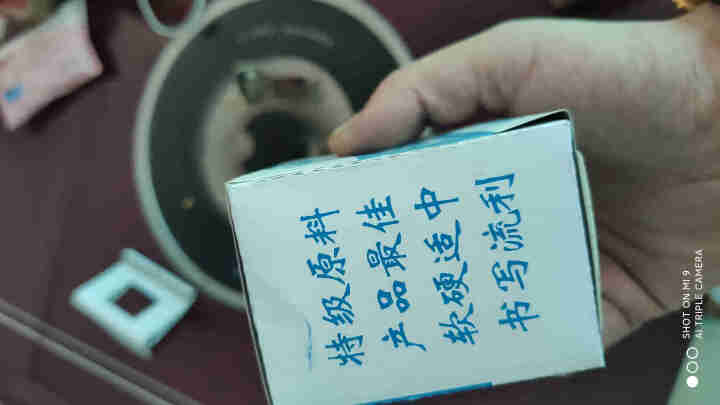 特级原料
产品最佳
软硬适中
书写流利
SHOT ON MI 9
AI TRIPLE CAMERA